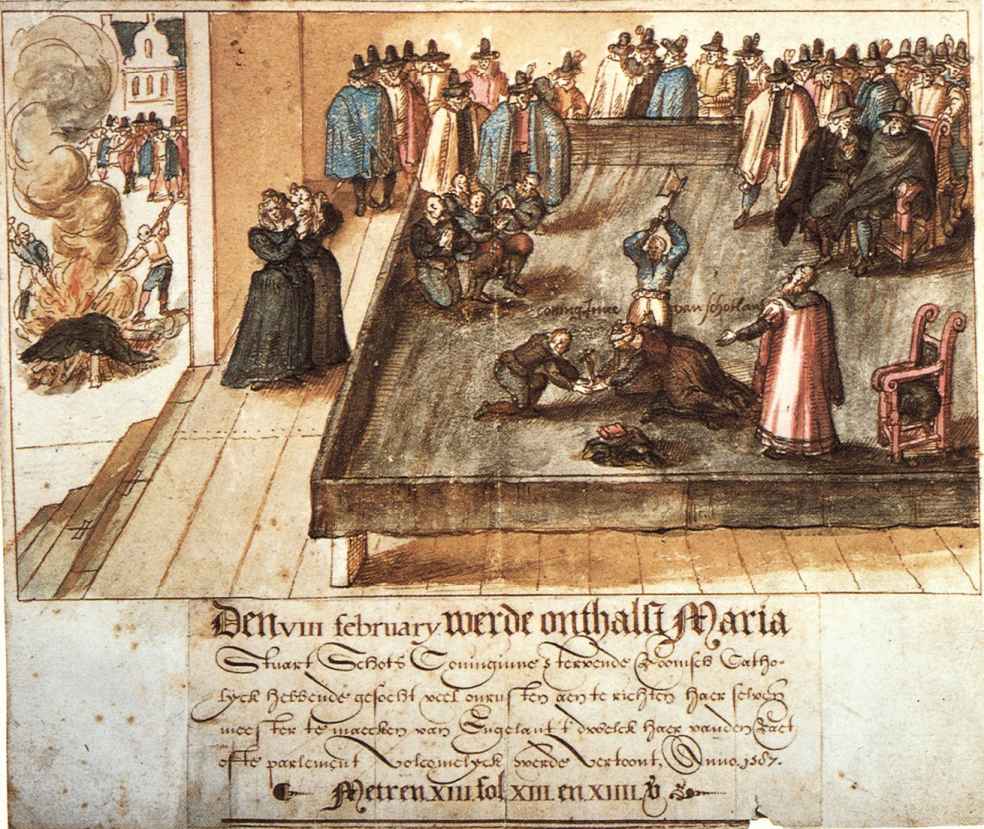 coninginne van schotlan
Den VIII february werde onthalst Maria
Stuart Schots Coninginne stervende Roomsch Catho-
lyck hebbende gesocht veel onrusten aen te richten haer selven
meester te maecken van Engelant t'dwelck haer vanden Raet
ofte parlement volcomelyck werde vertoont, Anno. 1587.
Metren XIII. fol XIII en XIIII.